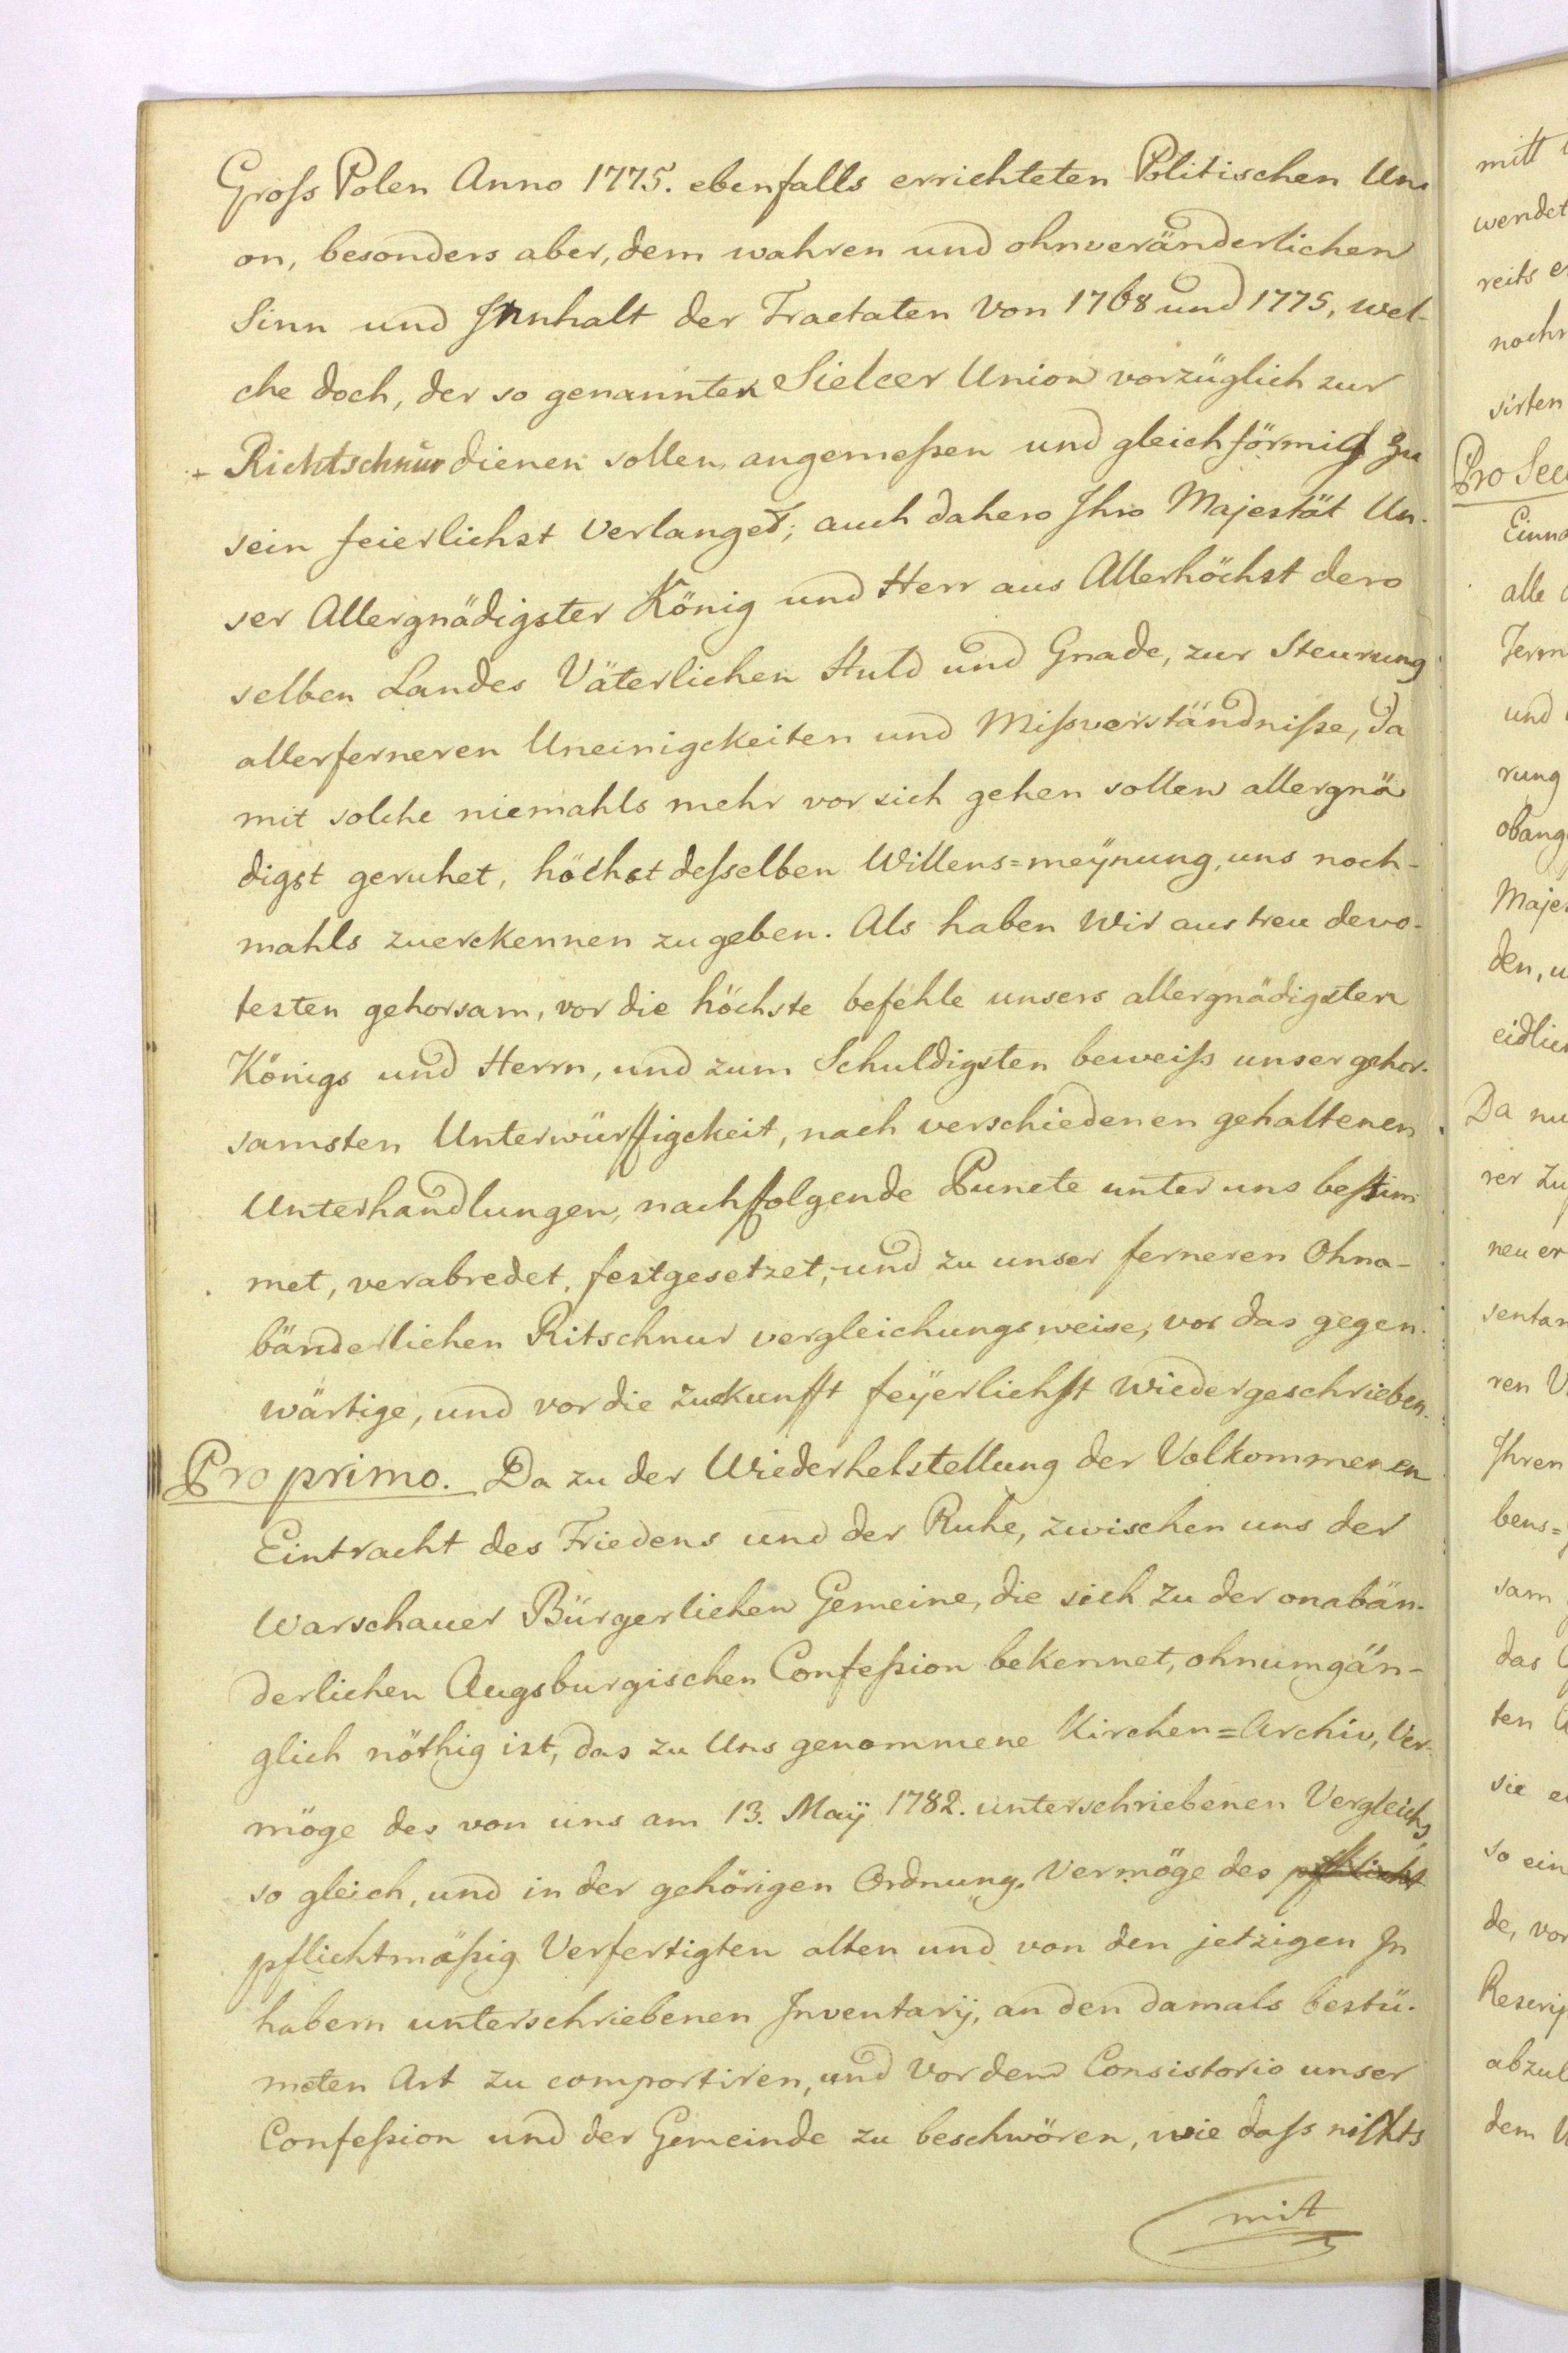 Groſs Polen Anno 1775. ebenfalls errichteten Politischen Uni
on, besonders aber, dem wahren und ohnveränderlichen
Sinn und Innhalt der Tractaten von 1768 und 1775, wel-
che doch, der so genannten Sielcer Union vorzüglich zur
+ Richtschnur dienen sollen, angemeſsen und gleichförmig zu
sein feierlichst Verlanget; auch dahero Ihro Majestät Un-
ser Allergnädigster König und Herr aus Allerhöchst dero
selben Landes Väterlichen Huld und Gnade, zur Steurung
allerferneren Uneinigckeiten und Miſsverständniſse, da
mit solche niemahls mehr vor sich gehen sollen allergnä
digst geruhet, höchst deſselben Willens=meÿnung, uns noch-
mahls zuerckennen zu geben. Als haben Wir aus treu devo-
testen gehorsam, vor die höchste befehle unsers allergnädigsten
Königs und Herrn, und zum Schuldigsten beweiſs unser gehor-
samsten Unterwürffigckeit, nach verschiedenen gehaltenen
Unterhandlungen, nachfolgende Puncte unter uns beſtim
met, verabredet, festgesetzet, und zu unser ferneren Ohna-
bänderlichen Ritschnur vergleichungsweise, vor das gegen-
wärtige, und vor die Zuckunfft feÿerlichſt wiedergeschrieben.
Pro primo. Da zu der Wiederhelstellung der Volkommenen
Eintracht des Friedens und der Ruhe, zwischen uns der
Warschauer Bürgerlichen Gemeine, die sich zu der onabän-
derlichen Augsburgischen Confeſsion bekennet, ohnumgän-
glich nöthig ist, das zu Uns genommene Kirchen=Archiv, Ver-
möge des von uns am 13. Maÿ 1782. unterschriebenen Vergleichs,
so gleich, und in der gehörigen Ordnung, Vermöge des pflicht
pflichtmäſsig Verfertigten alten und von den jetzigen In
habern unterschriebenen Inventarij, an den damals bestü-
meten Art zu comportiren, und vor dem Consistorio unser
Confeſsion und der Gemeinde zu beschwören, wie daſs nichts
mit
mitt
wendet
reits
sirten
Pro Sec
alle
und
rung
obang
Majes
den, u
eidlich
Da nu
rer Zu
neu er
sentan
ren V
Ihren
bens=
sam
das
ten
sie e
so ein
de, vor
Rescrip
abzul
dem